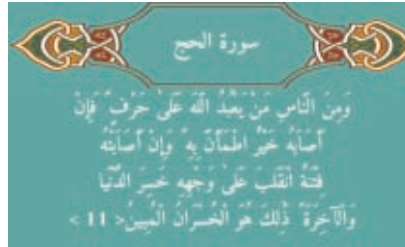 سورة الحج
وَمِنَ النَّاسِ مَنْ يَعْبُدُ اللَّهَ عَلَىٰ حَرْفٍ ۖ فَإِنْ
أَصَابَهُ خَيْرٌ اطْمَأَنَّ بِهِ ۖ وَإِنْ أَصَابَتْهُ
فِتْنَةٌ انْقَلَبَ عَلَىٰ وَجْهِهِ خَسِرَ الدُّنْيَا
وَالْآخِرَةَ ۚ ذَٰلِكَ هُوَ الْخُسْرَانُ الْمُبِينُ< 11 >